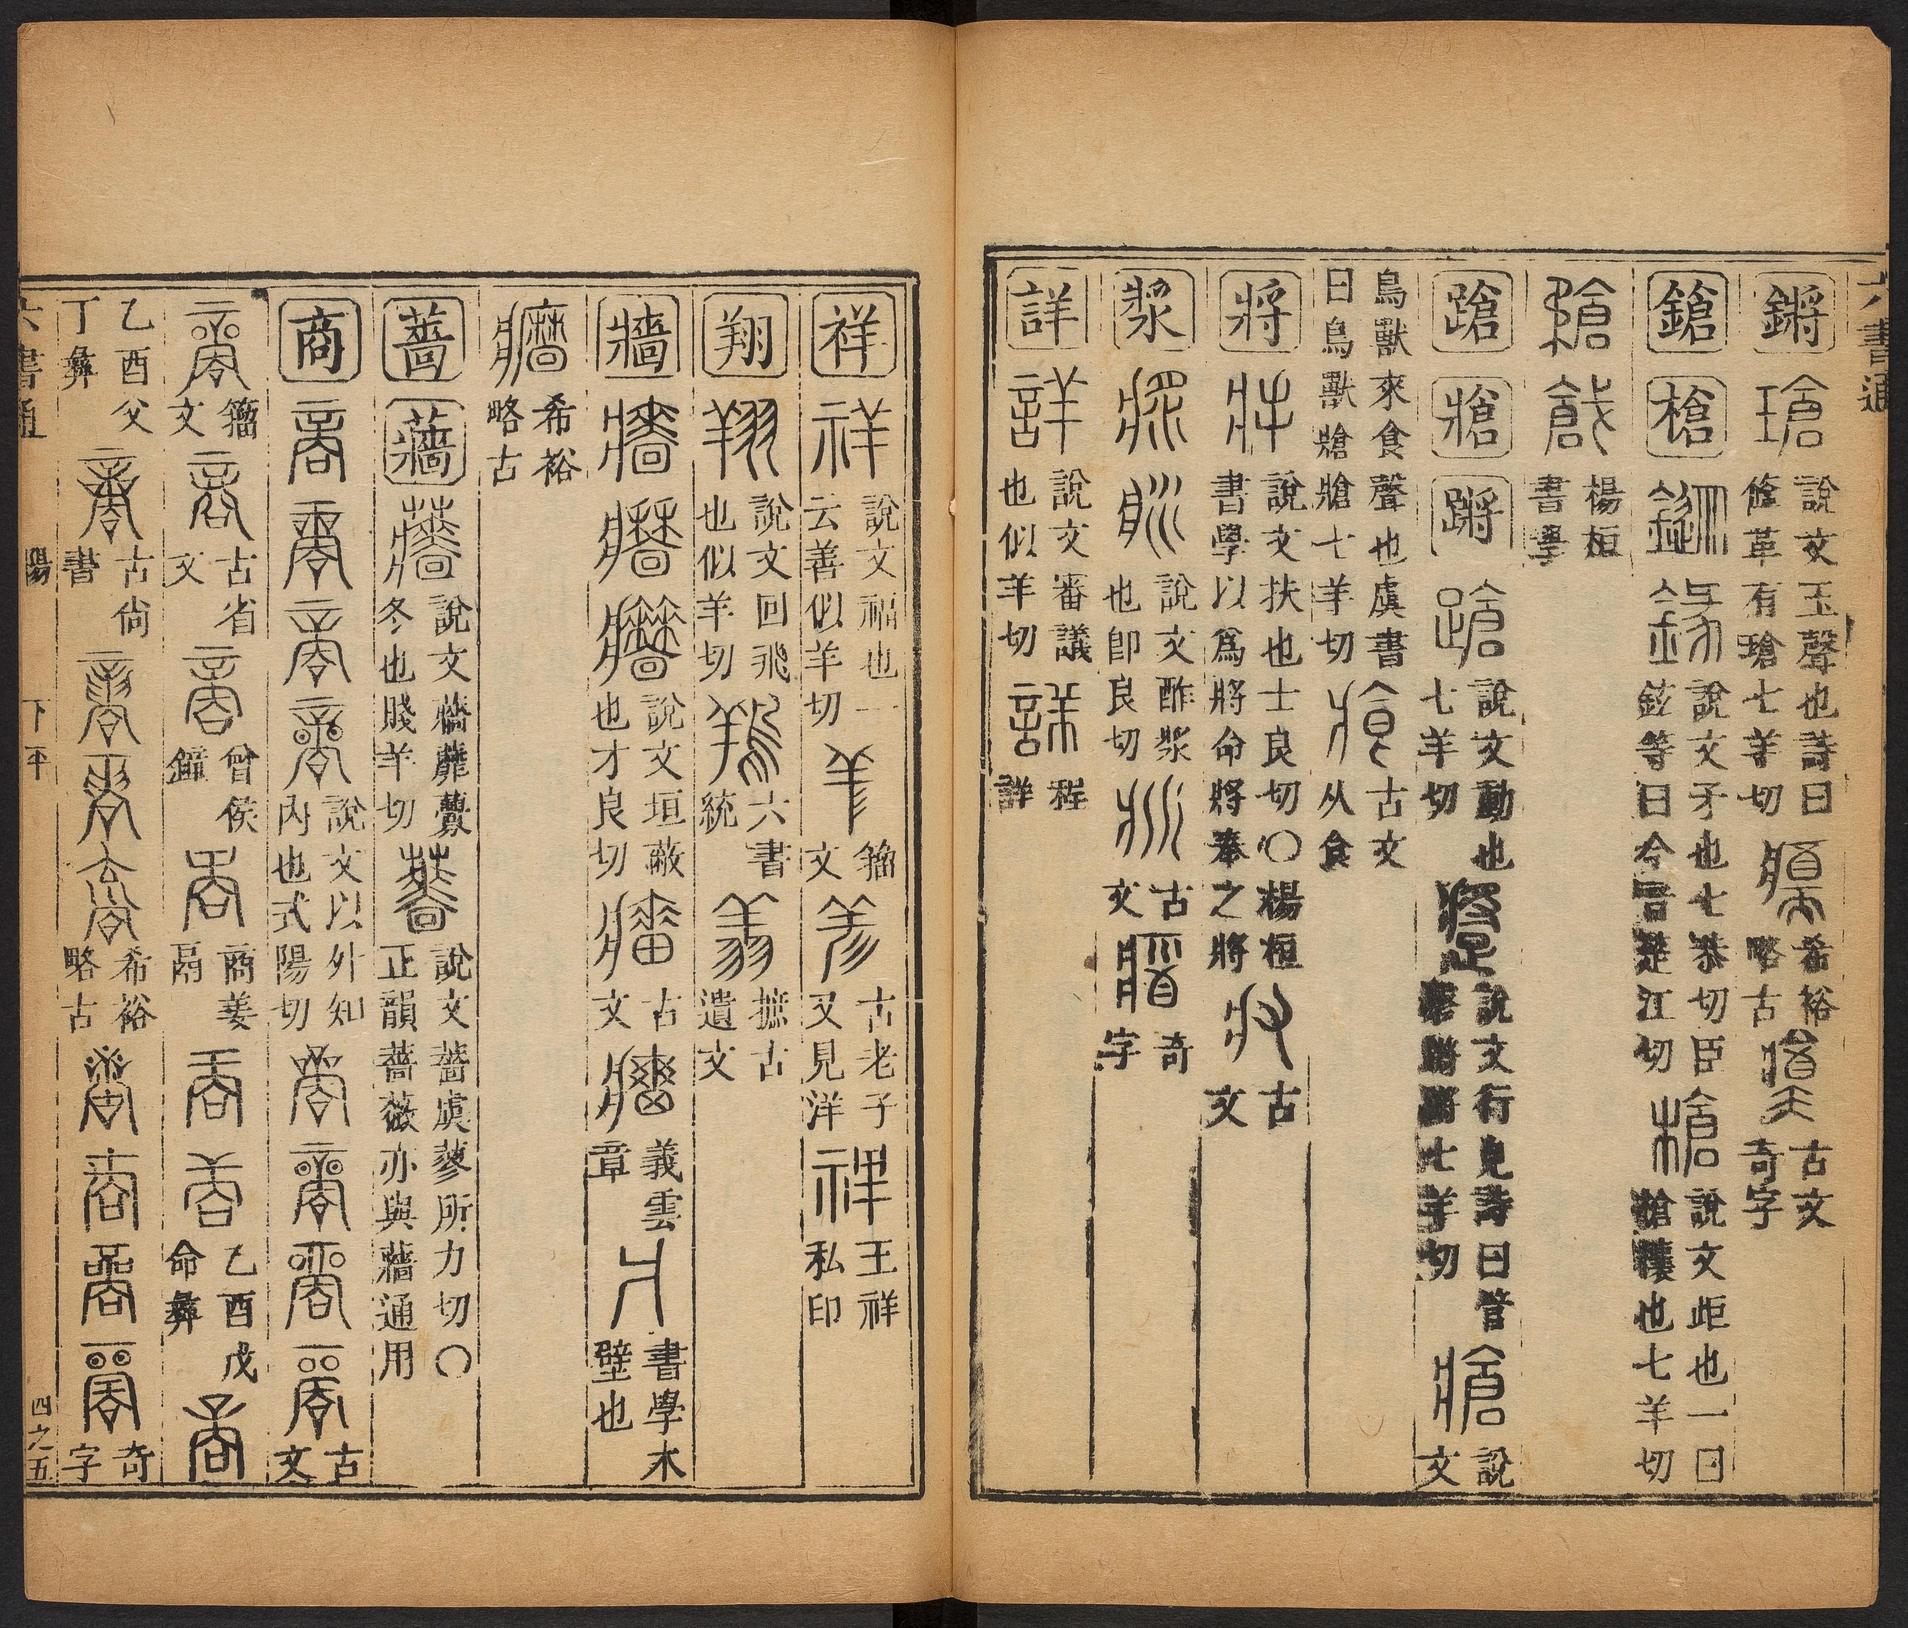 六書通
鏘 說文玉聲也詩曰鞗革有瑲七羊切 希裕略古 古文奇字
鎗 槍 說文矛也七恭切臣鉉等曰今音楚江切 說文歫也一曰槍欀也七羊切
楊桓書學
蹌 牄 蹡 說文動也七羊切 說文行皃詩曰管磬蹡蹡七羊切 說文
鳥獸來食聲也虞書曰鳥獸牄牄七羊切 古文从食
將 說文扶也士良切〇楊桓書學以爲將將命將奉之將 古文
漿 說文酢漿也卽良切 古文 奇字
詳 說文審議也似羊切 程詳
祥 說文福也一云善似羊切 籀文 古老子又見洋 王祥私印
翔 說文回飛也似羊切 六書統 摭古遺文
牆 說文垣蔽也才良切 古文 義雲章 書學木壁也
希裕略古
薔 蘠 說文蘠蘼虋冬也賤羊切 說文薔虞蓼所力切〇正韻薔薇亦與蘠通用
商 說文以外知內也式陽切 古文
籀文 古省文 曾侯鐘 商姜鬲 乙酉戊命彝
乙酉父丁彝 古尙書 希裕略古 奇字
六書通 陽 下平 四之五